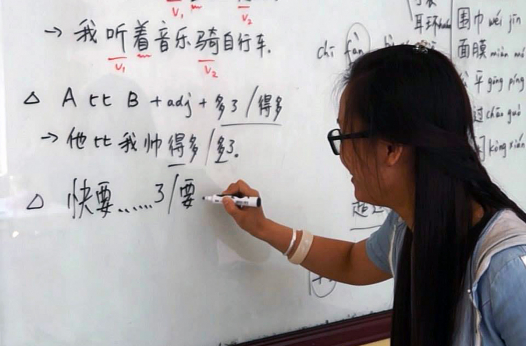 V₁ V₂
→ 我听着音乐骑自行车.
V₁ V₂
△ A 比 B + adj + 多了/得多
→ 他比我帅得多/多了.
△ 快要......了/要
chī fàn
耳环
围巾 wéi jīn
面膜 miàn mó
平 gōng píng
过 chāo guò